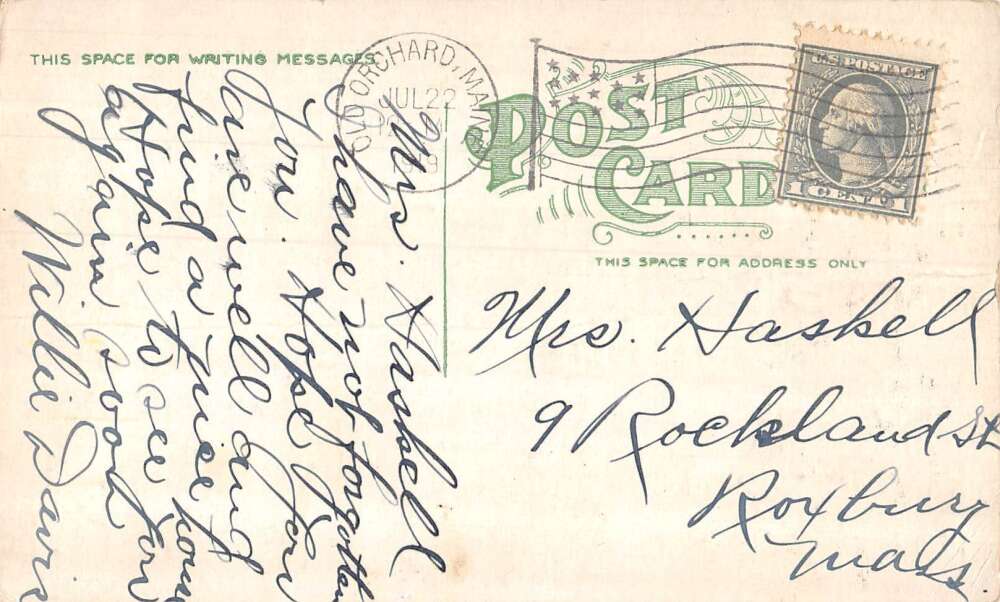 THIS SPACE FOR WRITING MESSAGES
Mrs. Haskell
I have not forgotten
you. Hope you
are well and
find a nice
Hope to see you
again soon
Willie Davis
OLD ORCHARD, MAINE
JUL 22
POST
CARD
U.S. POSTAGE
1 CENT
THIS SPACE FOR ADDRESS ONLY
Mrs. Haskell
9 Rockland St
Roxbury
Mass